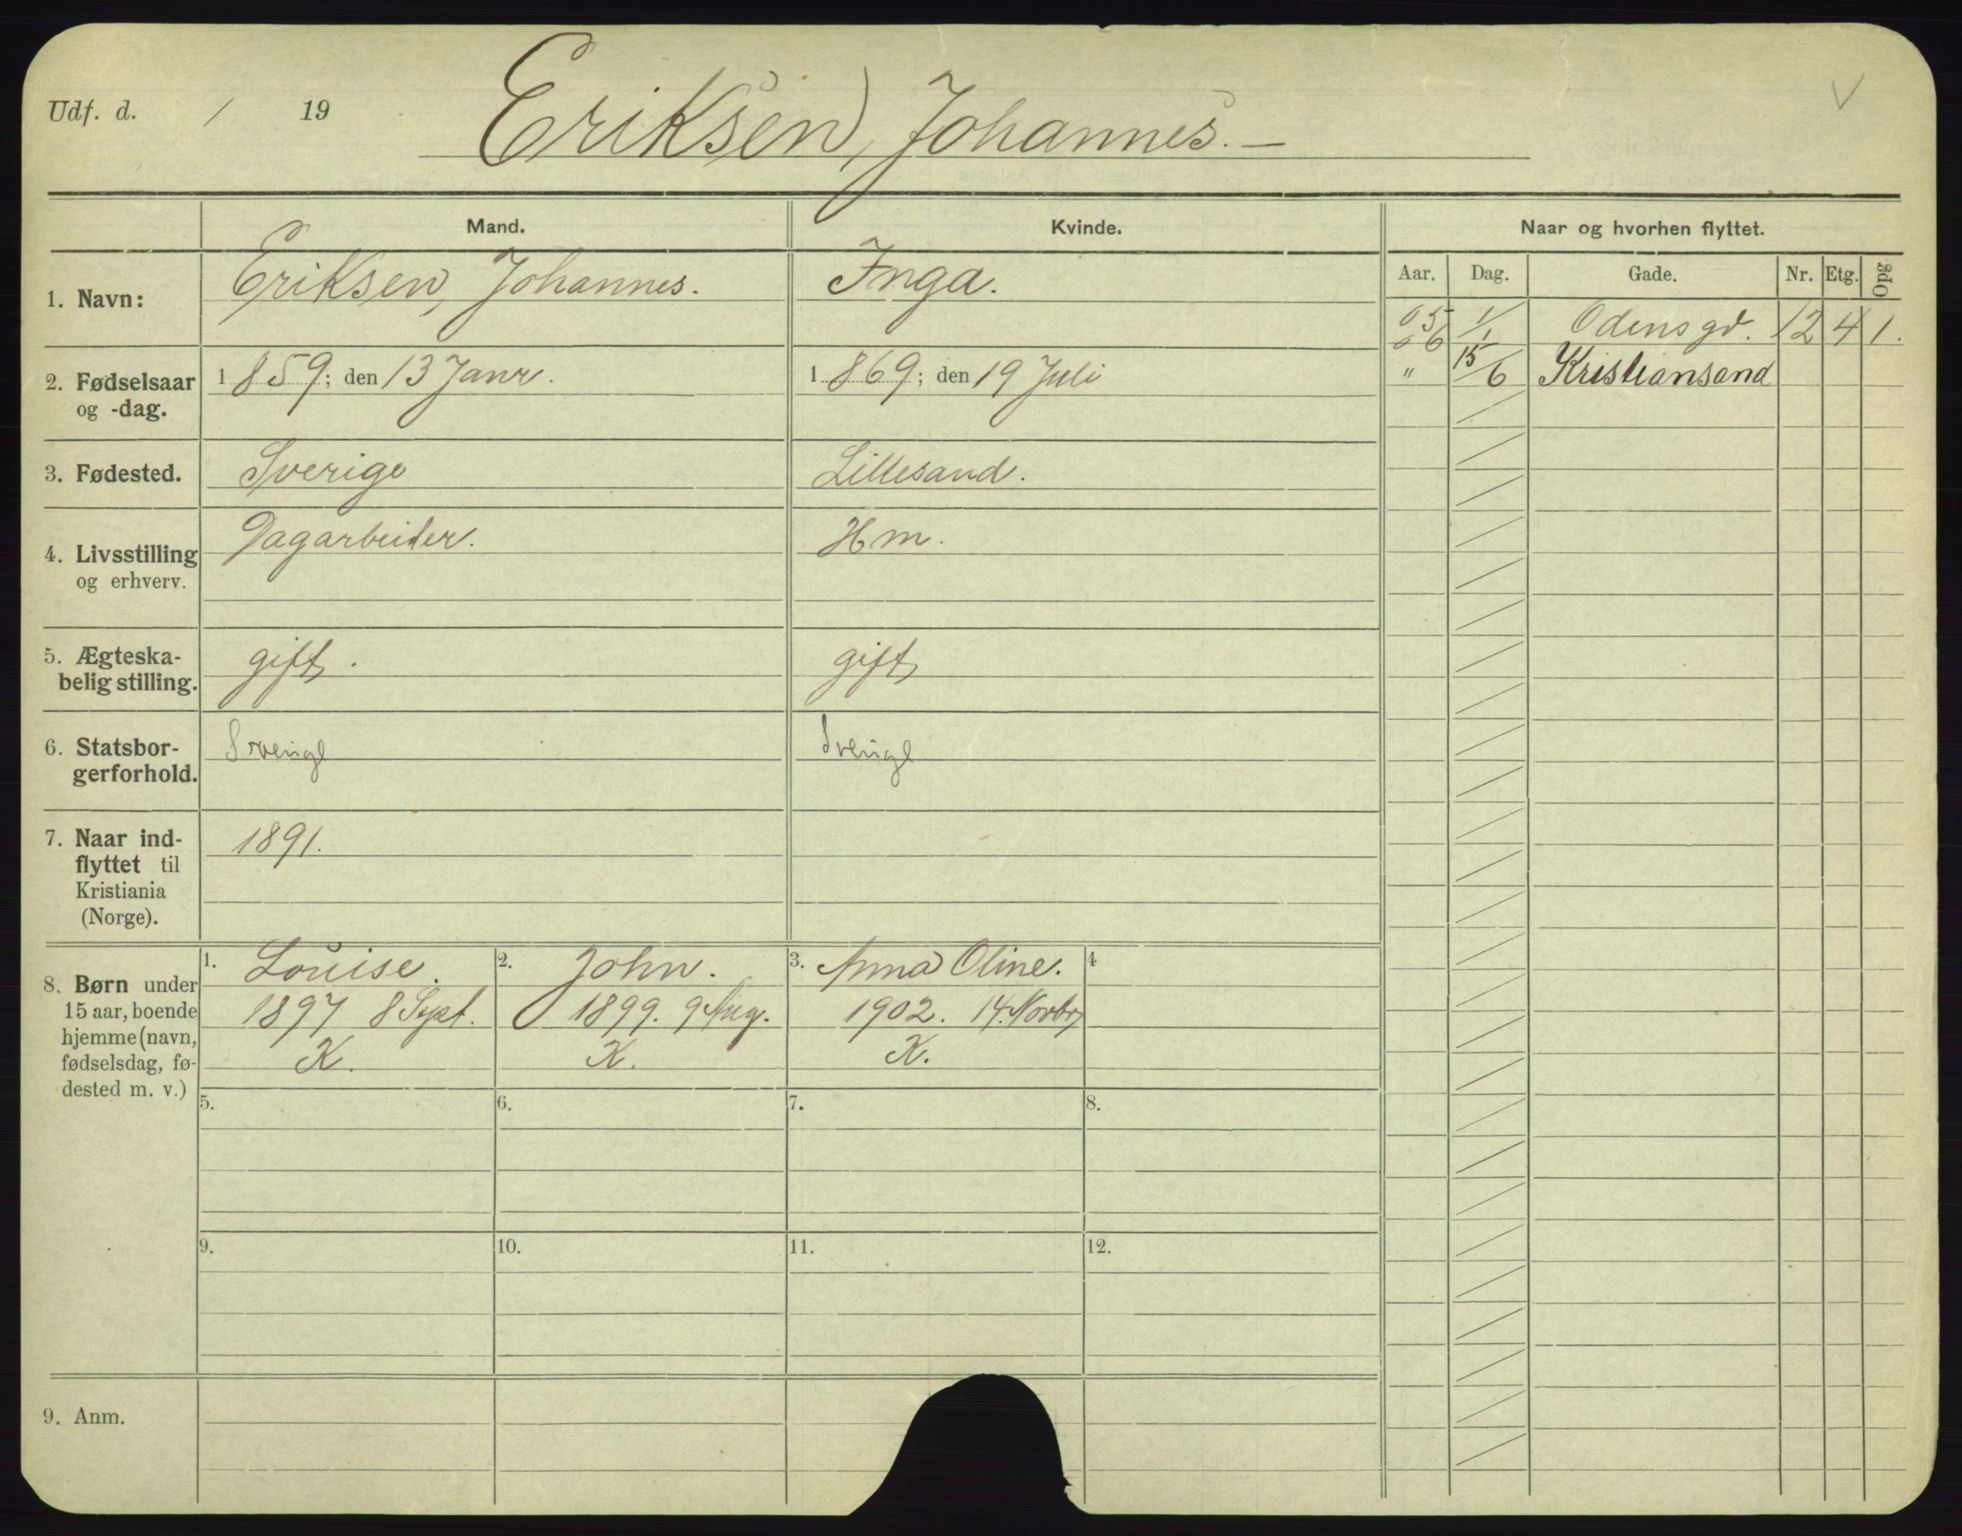 Udf. d. / 19
Eriksen, Johannes. —
V
Mand.
Kvinde.
Naar og hvorhen flyttet.
Aar. Dag. Gade. Nr. Etg. Opg
1. Navn:
Eriksen, Johannes.
Inga.
05 1/1 Odensgd. 12 4 1.
06
" 15/6 Kristiansand
2. Fødselsaar
og -dag.
1 859; den 13 Janr.
1 869; den 19 Juli
3. Fødested.
Sverige
Lillesand.
4. Livsstilling
og erhverv.
Dagarbeider.
Hm.
5. Ægteska-
belig stilling.
gift.
gift
6. Statsbor-
gerforhold.
Sverige
Sverige
7. Naar ind-
flyttet til
Kristiania
(Norge).
1891.
8. Børn under
15 aar, boende
hjemme (navn,
fødselsdag, fø-
dested m. v.)
1. Louise.
1897 8 Sept.
K.
2. John.
1899. 9 Aug.
K.
3. Anna Oline.
1902. 14. Novbr
K.
4
5.
6.
7.
8.
9.
10.
11.
12.
9. Anm.